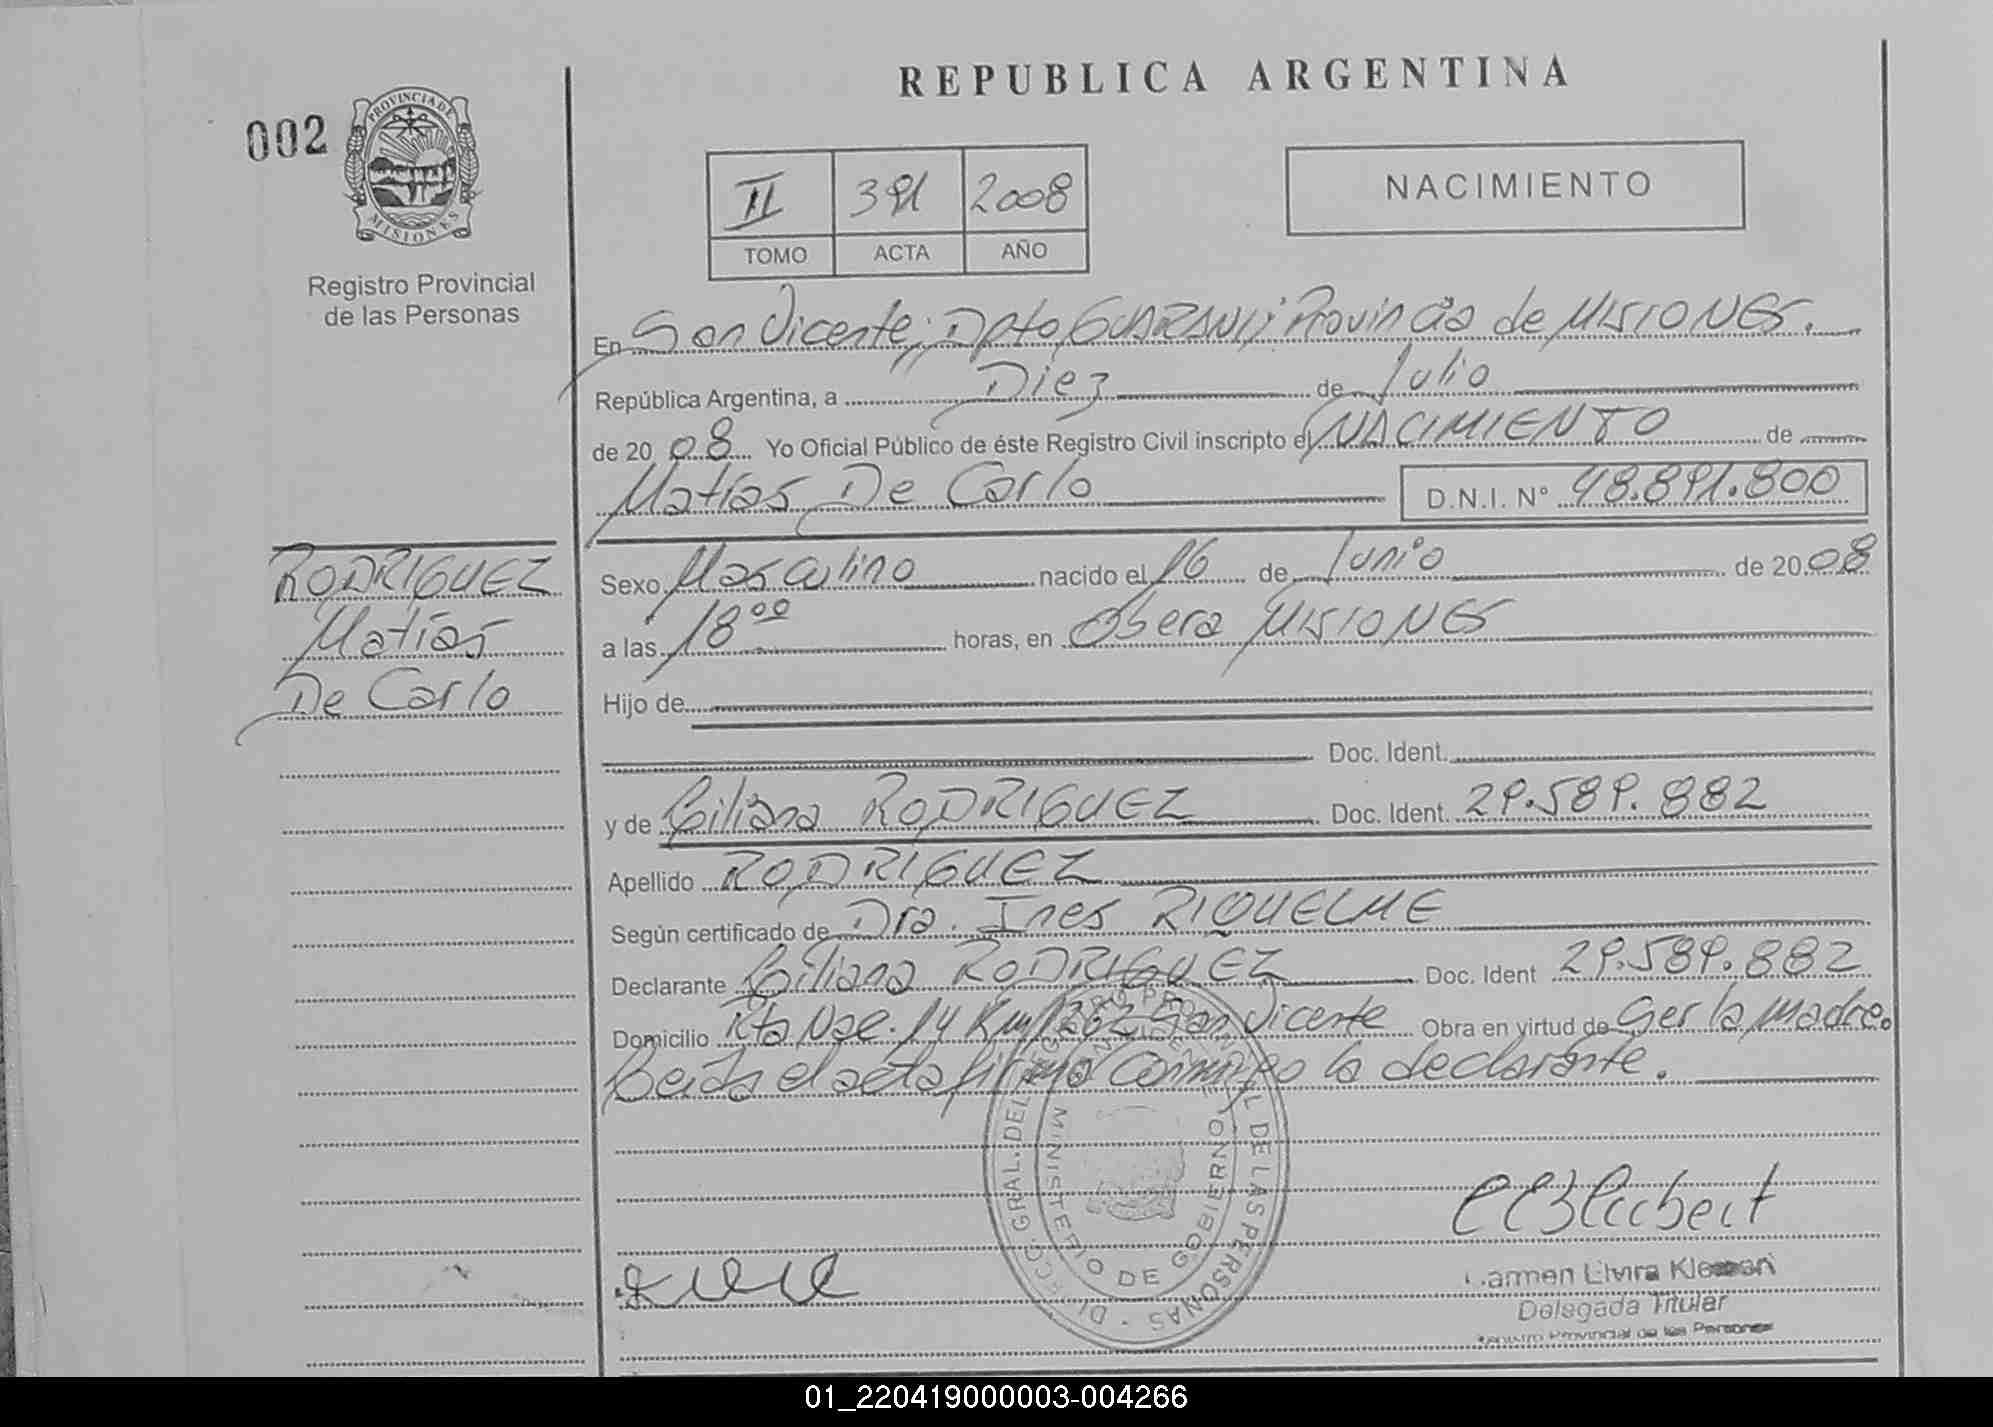 REPUBLICA ARGENTINA
002
PROVINCIA DE
MISIONES
Registro Provincial
de las Personas
II 391 2008
TOMO ACTA AÑO
NACIMIENTO
En San Vicente; Dpto GUARANI; Provincia de MISIONES.
República Argentina, a Diez de Julio
de 2008 Yo Oficial Público de éste Registro Civil inscripto el NACIMIENTO de
Matías De Carlo D.N.I. N° 48.891.800
RODRIGUEZ
Matías
De Carlo
Sexo Masculino nacido el 16 de Junio de 2008
a las 18°° horas, en Obera MISIONES
Hijo de
Doc. Ident.
y de Liliana RODRIGUEZ Doc. Ident. 29.589.882
Apellido RODRIGUEZ
Según certificado de Dra. Ines RIQUELME
Declarante Liliana RODRIGUEZ Doc. Ident 29.589.882
Domicilio Rta Nac. 14 Km 1262 San Vicente Obra en virtud de Ser la madre.
Leida el acta firma conmigo la declarante.
GRAL. DEL REGISTRO PROVINCIAL DE LAS PERSONAS
MINISTERIO DE GOBIERNO
Carmen Elvira
Delegada Titular
Registro Provincial de las Personas
01_220419000003-004266